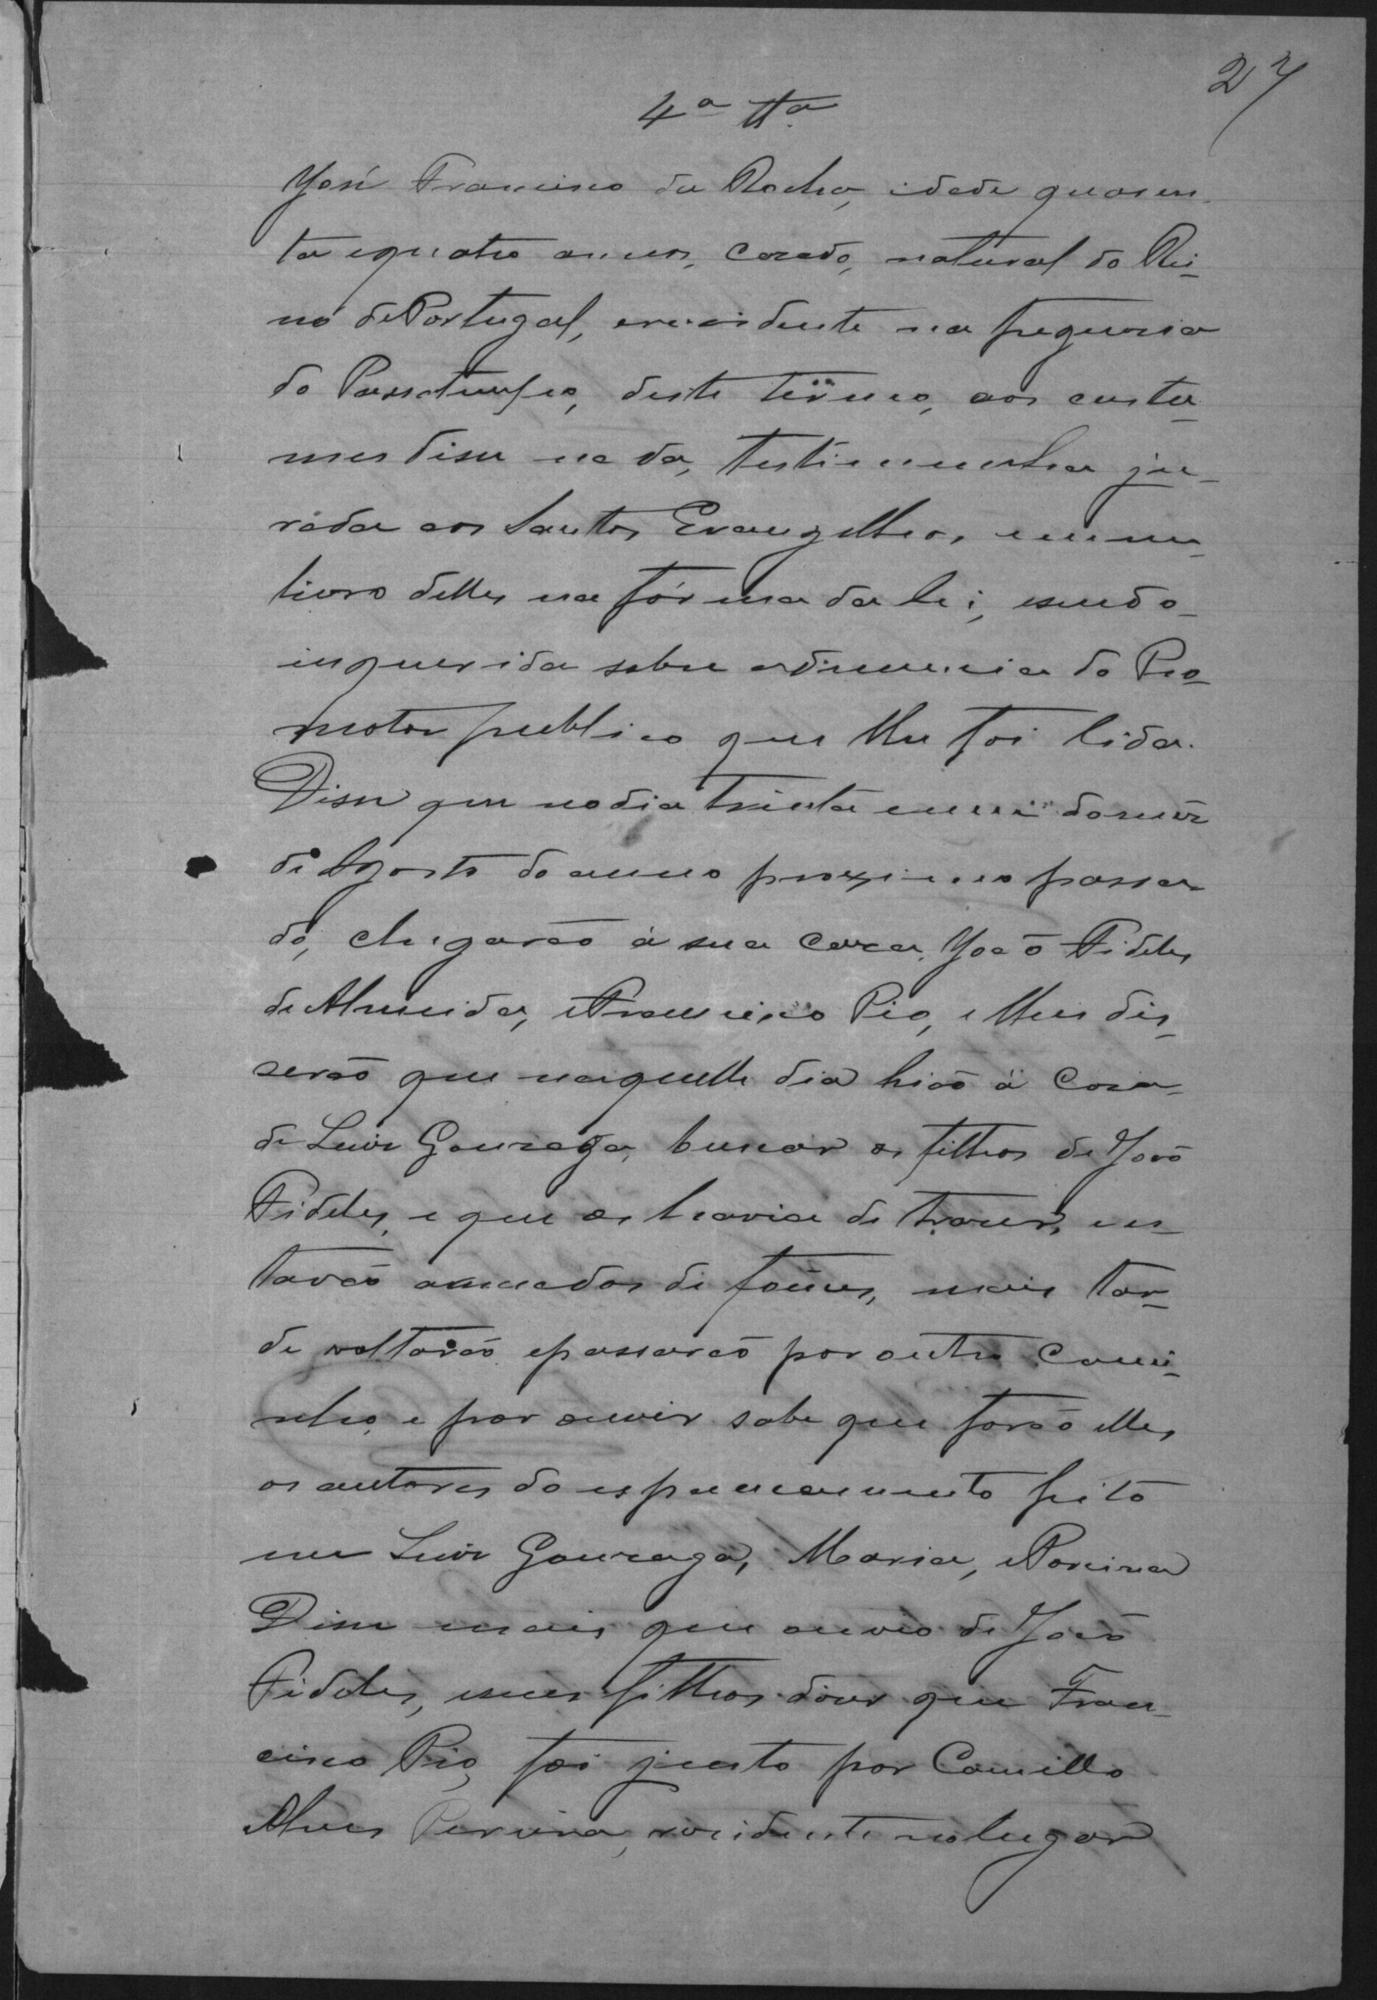 27
4ª ttª
José Francisco da Rocha, idade quaren
ta e quatro annos, casado, natural do Rei-
no de Portugal, e residente na freguesia
do Passatempo, deste têrmo, aos custu-
mes disse nada, testimunha ju-
rada aos Santos Evangelhos, em um
livro delles na fórma da lei, e sendo
inquerida sobre a denuncia do Pro-
motor publico que lhe foi lida.
Disse que no dia trinta e um do mêz
de Agosto do anno proximo passa
do, chegarão á sua casa, João Fideles
de Almeida, e Francisco Pio, e lhes dis-
serão que naquelle dia hião á casa
de Luiz Gonzaga, buscar os filhos de João
Fideles, e que os havia de trazer, es-
tavão armados de foices, mais tar-
de voltarão e passarão por outro cami-
nho, e por ouvir sabe que forão elles
os autores do espancamento feito
em Luiz Gonzaga, Maria, e Porcina
Disse mais que ouvio de João
Fideles, e seus filhos dizer que Fran-
cisco Pio, foi justo por Camillo
Alves Pereira, rezidente no lugar